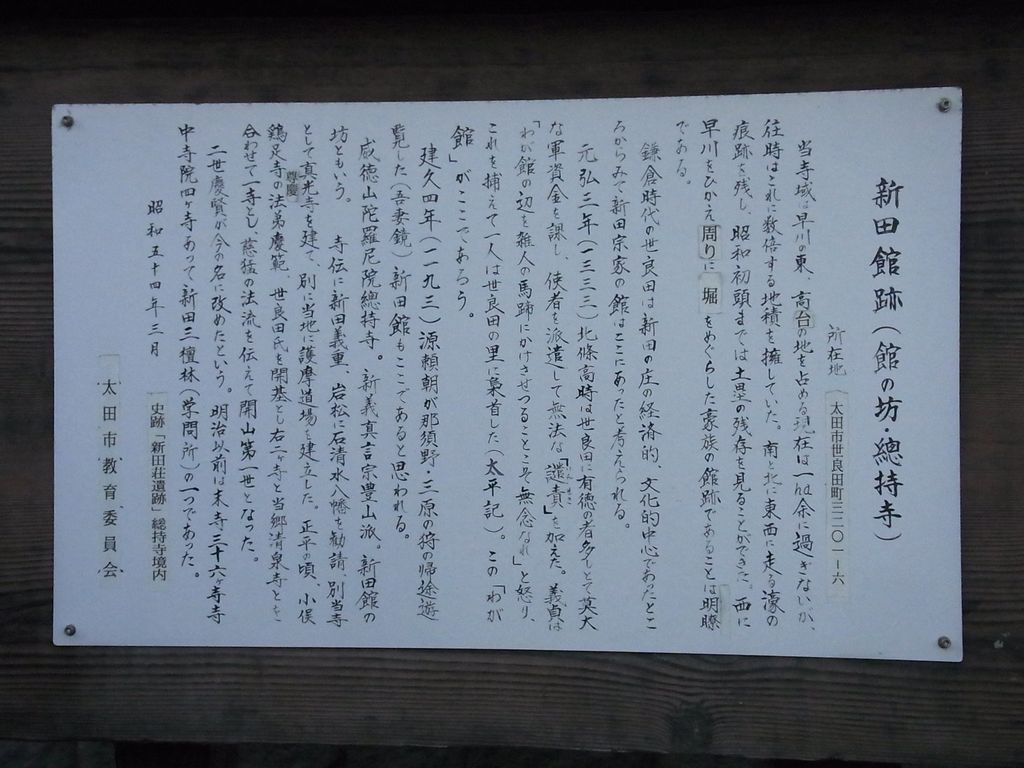 新田館跡(館の坊・總持寺)
所在地 太田市世良田町三二〇一ー六
当寺域は早川の東、高台の地を占める現在は一ha余に過ぎないが、
往時はこれに数倍する地積を擁していた。南と北に東西に走る濠の
痕跡を残し、昭和初頭までは土塁の残存を見ることができた。西に
早川をひかえ周りに堀をめぐらした豪族の館跡であることは明瞭
である。
鎌倉時代の世良田は新田の庄の経済的、文化的中心であったとこ
ろからみて新田宗家の館はここにあったと考えられる。
元弘三年(一三三三)北條高時は世良田に有徳の者多しとて莫大
な軍資金を課し、使者を派遣して無法な「譴責」を加えた。義貞は
「わが館の辺を雑人の馬蹄にかけさせつることこそ無念なれ」と怒り、
これを捕えて一人は世良田の里に梟首した(太平記)。この「わが
館」がここであろう。
建久四年(一一九三)源頼朝が那須野・三原の狩の帰途遊
覧した(吾妻鏡)新田館もここであると思われる。
威徳山陀羅尼院總持寺。新義真言宗豊山派。新田館の
坊ともいう。 寺伝に新田義重、岩松に石清水八幡を勧請、別当寺
として真光寺を建て、別に当地に護摩道場を建立した。正平の頃、小俣
鶏足寺の法弟慶範、世良田氏を開基とし右二ヶ寺と当郷清泉寺とを
尊慶
合わせて一寺とし、慈猛の法流を伝えて開山第一世となった。
二世慶賢が今の名に改めたという。明治以前は末寺三十六ヶ寺寺
中寺院四ヶ寺あって新田三檀林(学問所)の一つであった。
昭和五十四年三月
史跡「新田荘遺跡」総持寺境内
太田市教育委員会